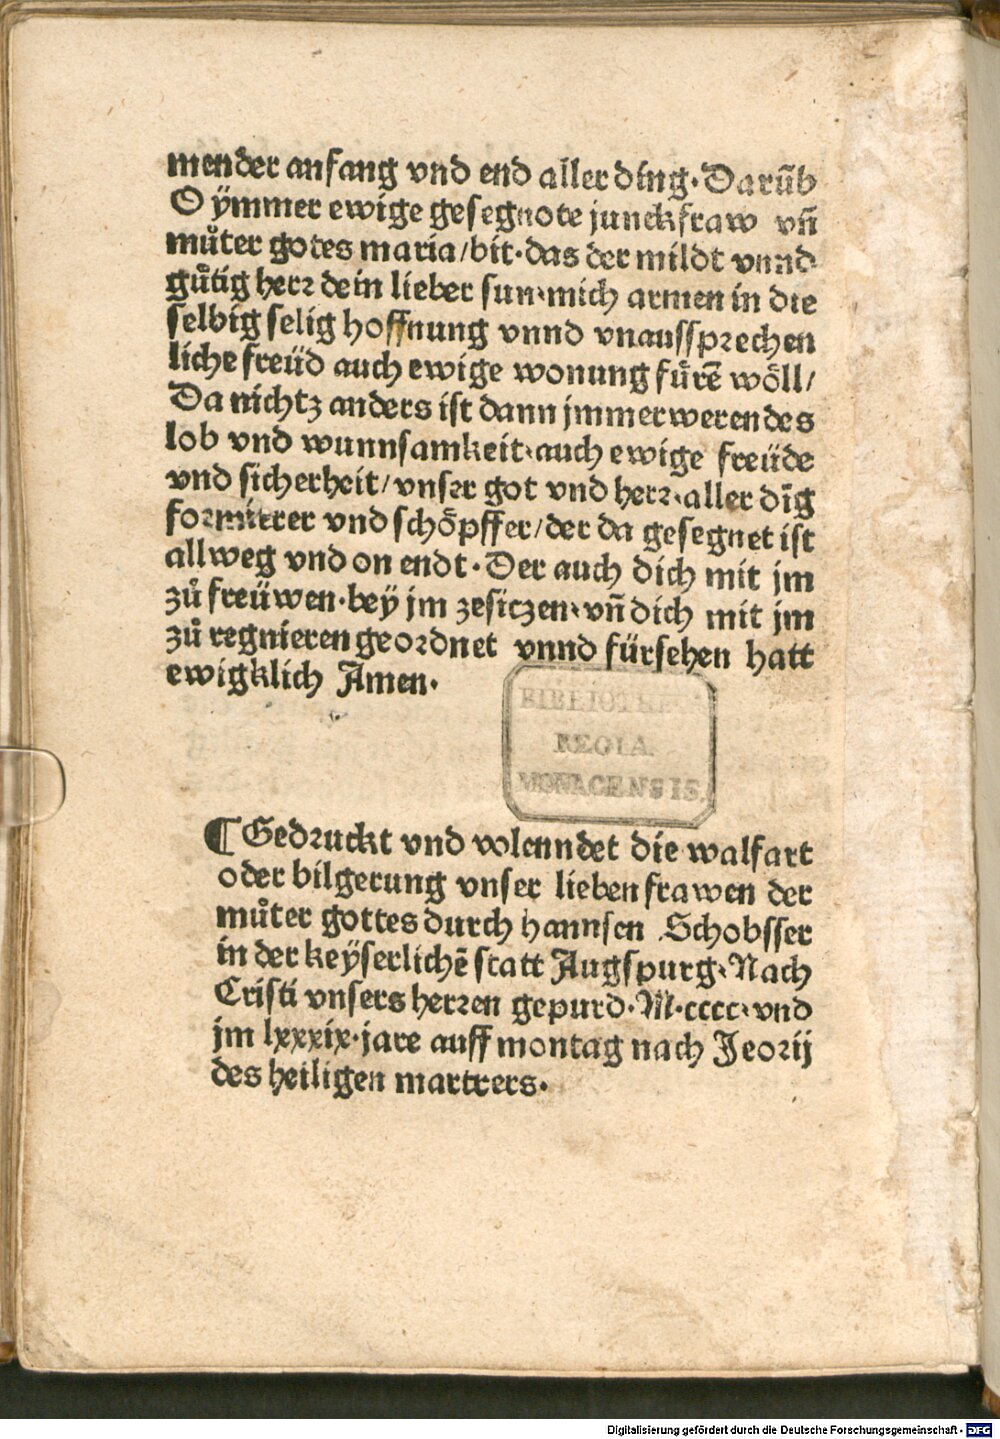 mender anfang vnd end aller ding. Darūb
O ÿmmer ewige gesegnote junckfraw vn̄
můter gotes maria/bit. das der mildt vnnd
gůtig herr dein lieber sun. mich armen in die
selbig selig hoffnung vnnd vnaussprechen
liche freüd auch ewige wonung fůrē wöll/
Da nichtz anders ist dann jmmerwerendes
lob vnd wunnsamkeit. auch ewige freüde
vnd sicherheit/vnser got vnd herr. aller dīg
formirer vnd schöpffer/der da gesegnet ist
allweg vnd on endt. Der auch dich mit jm
zů freüwen. bëy jm zesitzen. vn̄ dich mit jm
zů regnieren geordnet vnnd fürsehen hatt
ewigklich Amen.
BIBLIOTHECA
REGIA
MONACENSIS.
¶ Gedruckt vnd volenndet die walfart
oder bilgerung vnser lieben frawen der
můter gottes durch hannsen Schobsser
in der keÿserlichē statt Augspurg. Nach
Cristi vnsers herren gepurd. M. cccc. vnd
jm lxxxix. jare auff montag nach Jeorij
des heiligen martrers.
Digitalisierung gefördert durch die Deutsche Forschungsgemeinschaft - DFG